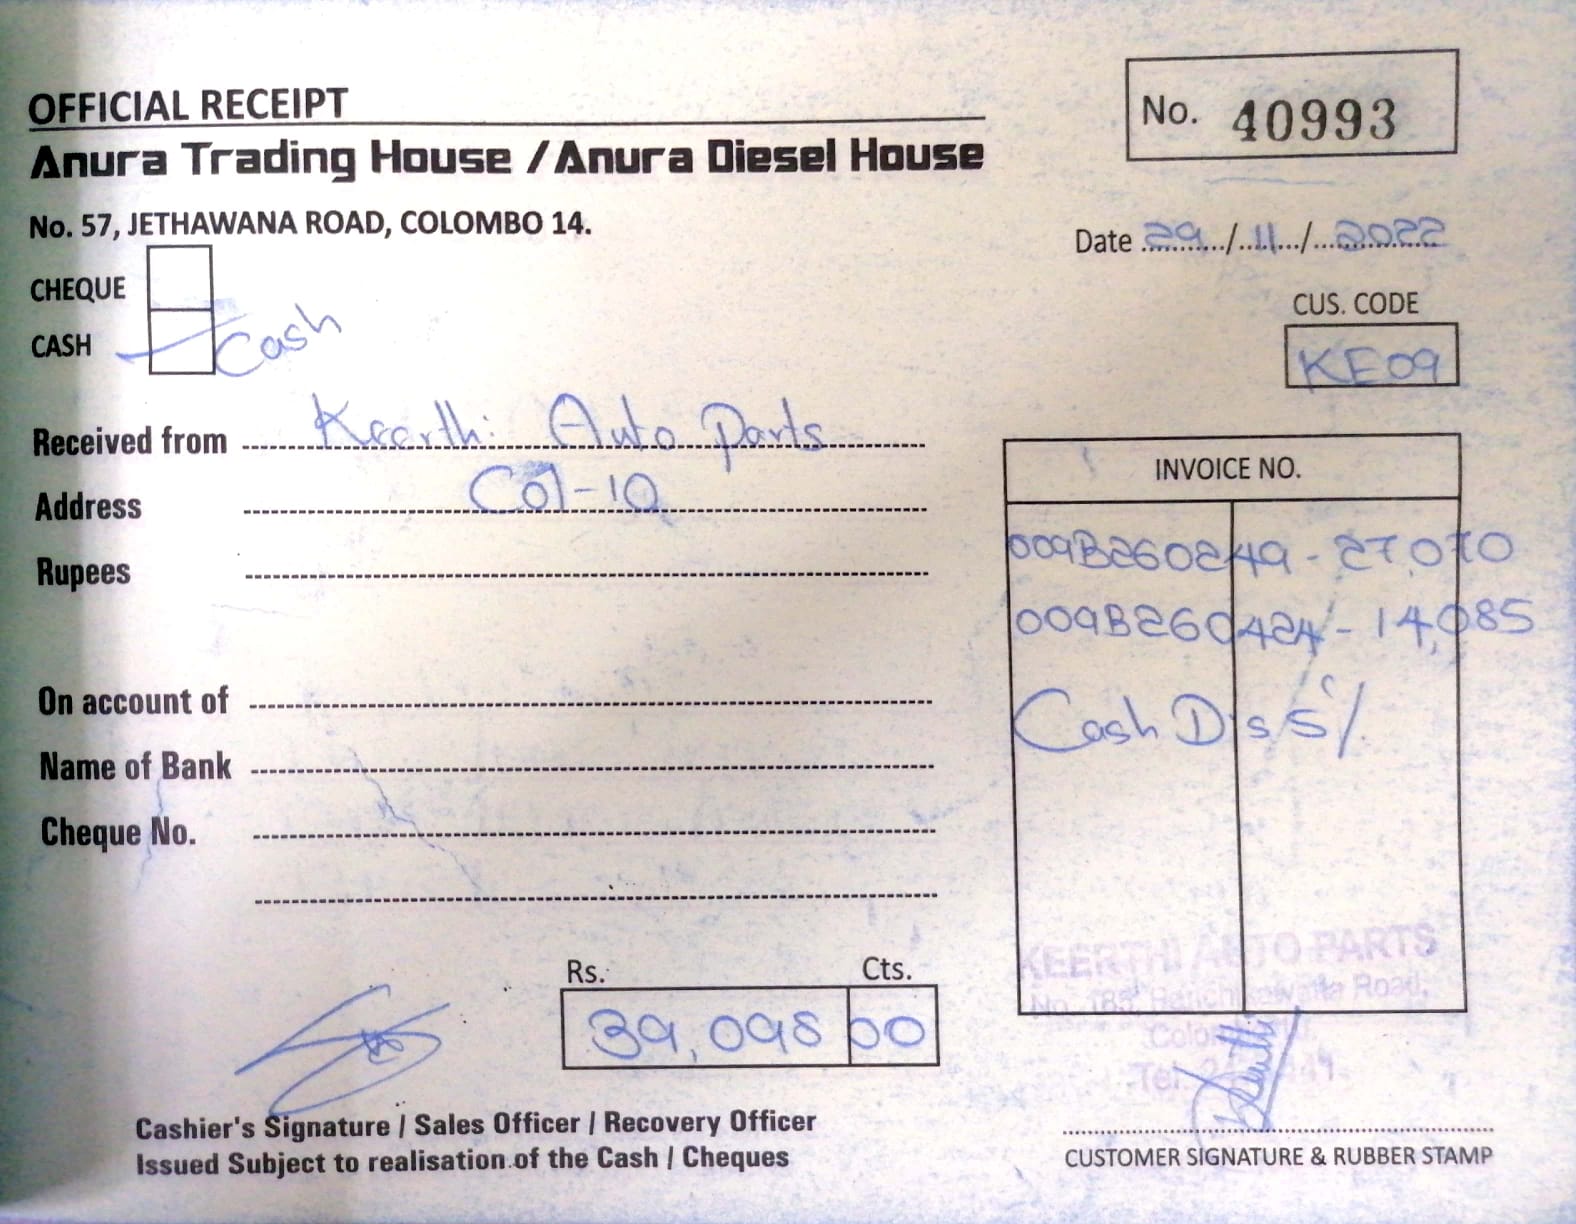 OFFICIAL RECEIPT
No. 40993
Anura Trading House / Anura Diesel House
No. 57, JETHAWANA ROAD, COLOMBO 14.
Date 29/11/2022
CHEQUE
CUS. CODE
CASH Cash
KE09
Received from Keerthi Auto Parts
INVOICE NO.
Address Col-10
009B260249 - 27,010
Rupees
009B260424 - 14,085
On account of
Cash Dis 5%
Name of Bank
Cheque No.
KEERTHI AUTO PARTS
Rs. Cts.
Road,
39,098 00
Tel
Cashier's Signature / Sales Officer / Recovery Officer
Issued Subject to realisation of the Cash / Cheques
CUSTOMER SIGNATURE & RUBBER STAMP